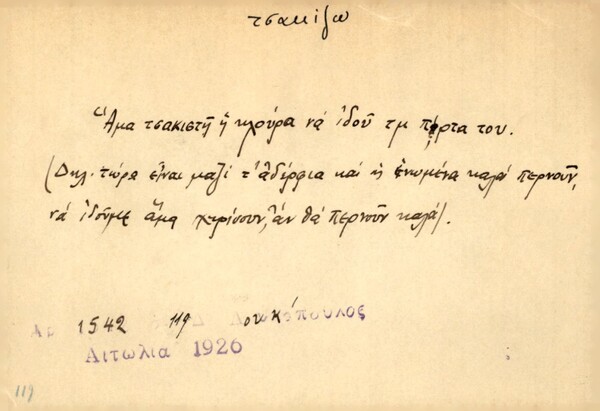 τσακίζω
Ἅμα τσακιστῇ ἡ κλούρα νὰ ἰδοῦ τη πόρτα του.
(Δηλ. τώρα εἶναι μαζὶ τ' ἀδέρφια καὶ ἡ ἑνωμένα καλὰ περνοῦν,
νὰ ἰδοῦμε ἅμα χωρίσουν, ἂν θὰ περνοῦν καλά).
1542 119 Δ. Λουκόπουλος
Αἰτωλία 1926
119